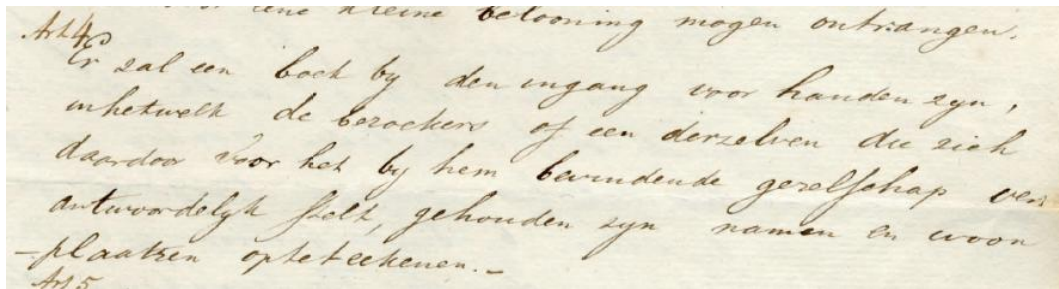 eene kleine belooning mogen ontvangen.
Art 4
Er zal een boek by den ingang voor handen zyn,
inhetwelk de bezoekers of een derzelven die zich
daardoor voor het by hem bevindende gezelschap ver
antwoordelyk stelt, gehouden zyn namen en woon
-plaatzen opteteekenen.-
Art 5